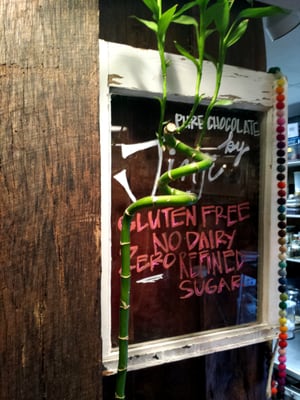 PURE CHOCOLATE
by
GLUTEN FREE
NO DAIRY
ZERO REFINED
SUGAR